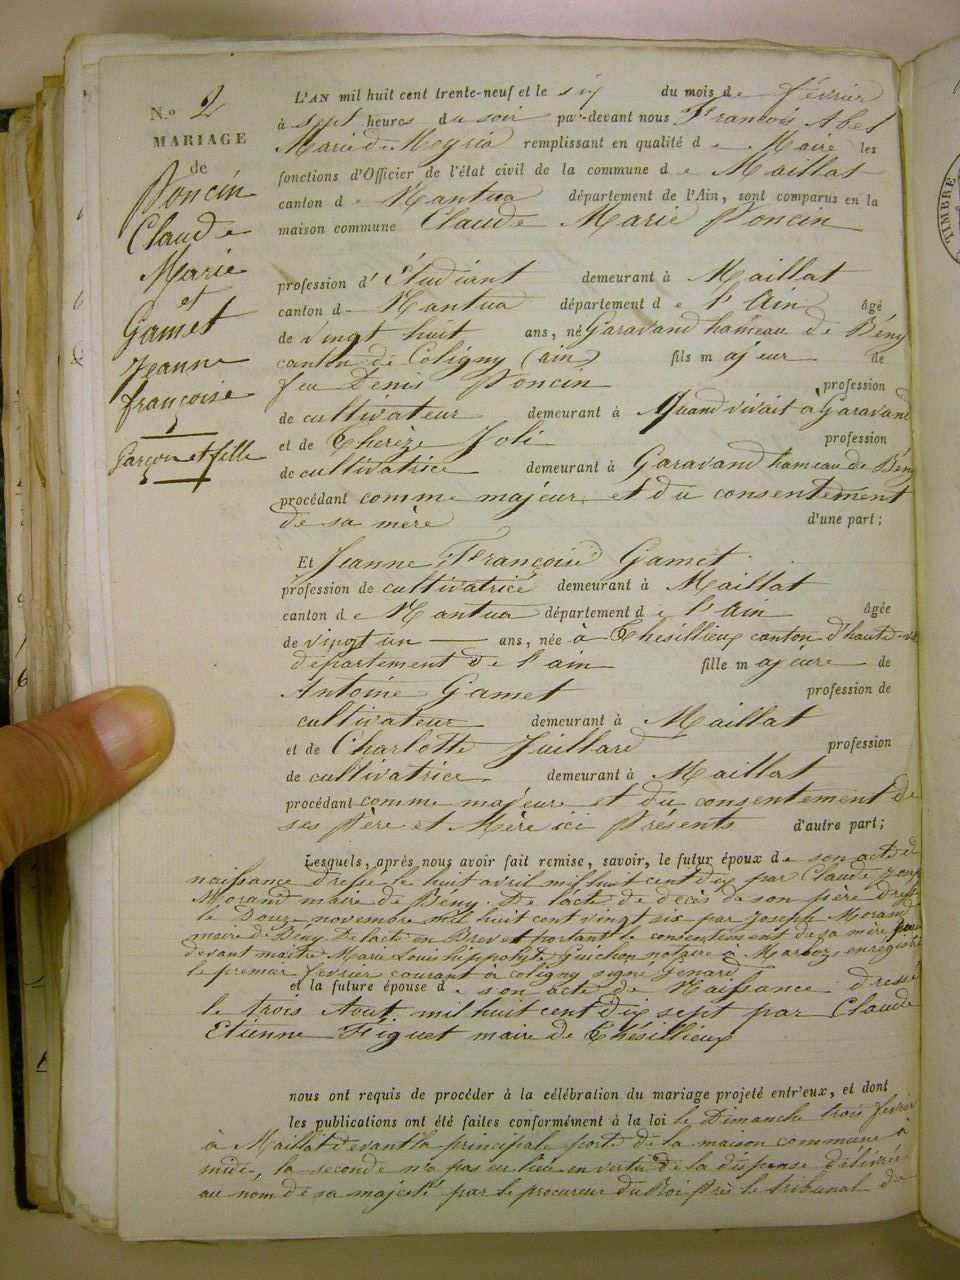 N.o 2
MARIAGE
de
Poncin
Claude
Marie
et
Gamet
Jeanne
françoise
Garçon et fille
L'AN mil huit cent trente-neuf et le six du mois de février
à sept heures du soir par-devant nous François Abel
Marie de Meyria remplissant en qualité de Maire les
fonctions d'Officier de l'état civil de la commune de Maillat
canton de Nantua département de l'Ain, sont comparus en la
maison commune Claude Marie Poncin
profession d'Étudiant demeurant à Maillat
canton de Nantua département de l'Ain âgé
de vingt huit ans, né Garavand hameau de Bény
canton de Coligny (ain) fils majeur de
feu Denis Poncin profession
de cultivateur demeurant à Quand vivait à Garavand
et de Therèze Joli profession
de cultivatrice demeurant à Garavand hameau de Bény
procédant comme majeur et du consentement
de sa mère d'une part;
Et Jeanne Françoise Gamet
profession de cultivatrice demeurant à Maillat
canton de Nantua département de l'Ain âgée
de vingt un ans, née à Thésillieux canton d'haute
département de l'ain fille majeure de
Antoine Gamet profession de
cultivateur demeurant à Maillat
et de Charlotte Juillard profession
de cultivatrice demeurant à Maillat
procédant comme majeure et du consentement de
ses Père et Mère ici Présents d'autre part;
Lesquels, après nous avoir fait remise, savoir, le futur époux de son acte de
naissance dressé le huit avril mil huit cent dix par Claude
Morand maire de Bény. De l'acte de décès de son père dressé
le Douze novembre mil huit cent vingt six par Joseph Morand
maire de Bény. De l'acte en Brevet portant le consentement de sa mère
devant maître Marie Louis hippolyte Guichon notaire à Marboz enregistré
le premier février courant à coligny signé Genard
et la future épouse de son acte de Naissance dressé
le trois Aout mil huit cent dix sept par Claude
Etienne Figuet maire de Thésillieux
nous ont requis de procéder à la célébration du mariage projeté entr'eux, et dont
les publications ont été faites conformément à la loi le Dimanche trois février
à Maillat devant la principale porte de la maison commune à
midi, la seconde n'a pas eu lieu en vertu de la dispense délivrée
au nom de sa majesté par le procureur du Roi Près le tribunal de
TIMBRE